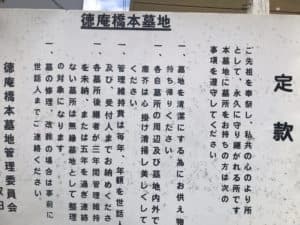 徳庵橋本墓地
定款
ご先祖を奉祭し、私共の心のより所
として、永久に守り継がれる所です
本墓地に墓所をお持ちの方は次の
事項を遵守してください。
一、墓地を清潔にする為にお供え物
持ち帰りください。
一、各自墓所の周辺及び墓地内外で
塵芥は心掛け清掃し美しくして
一、管理維持費は毎年、年額を世話人
及び、受付人までお納めください
一、各墓所後継者が三年間管理維持
を未納、または五年を過ぎ連絡
ない墓所は無縁墓地として整理
の対象になります。
一、墓の修理、改葬の場合は事前に
世話人までご連絡ください。
徳庵橋本墓地管理委員会